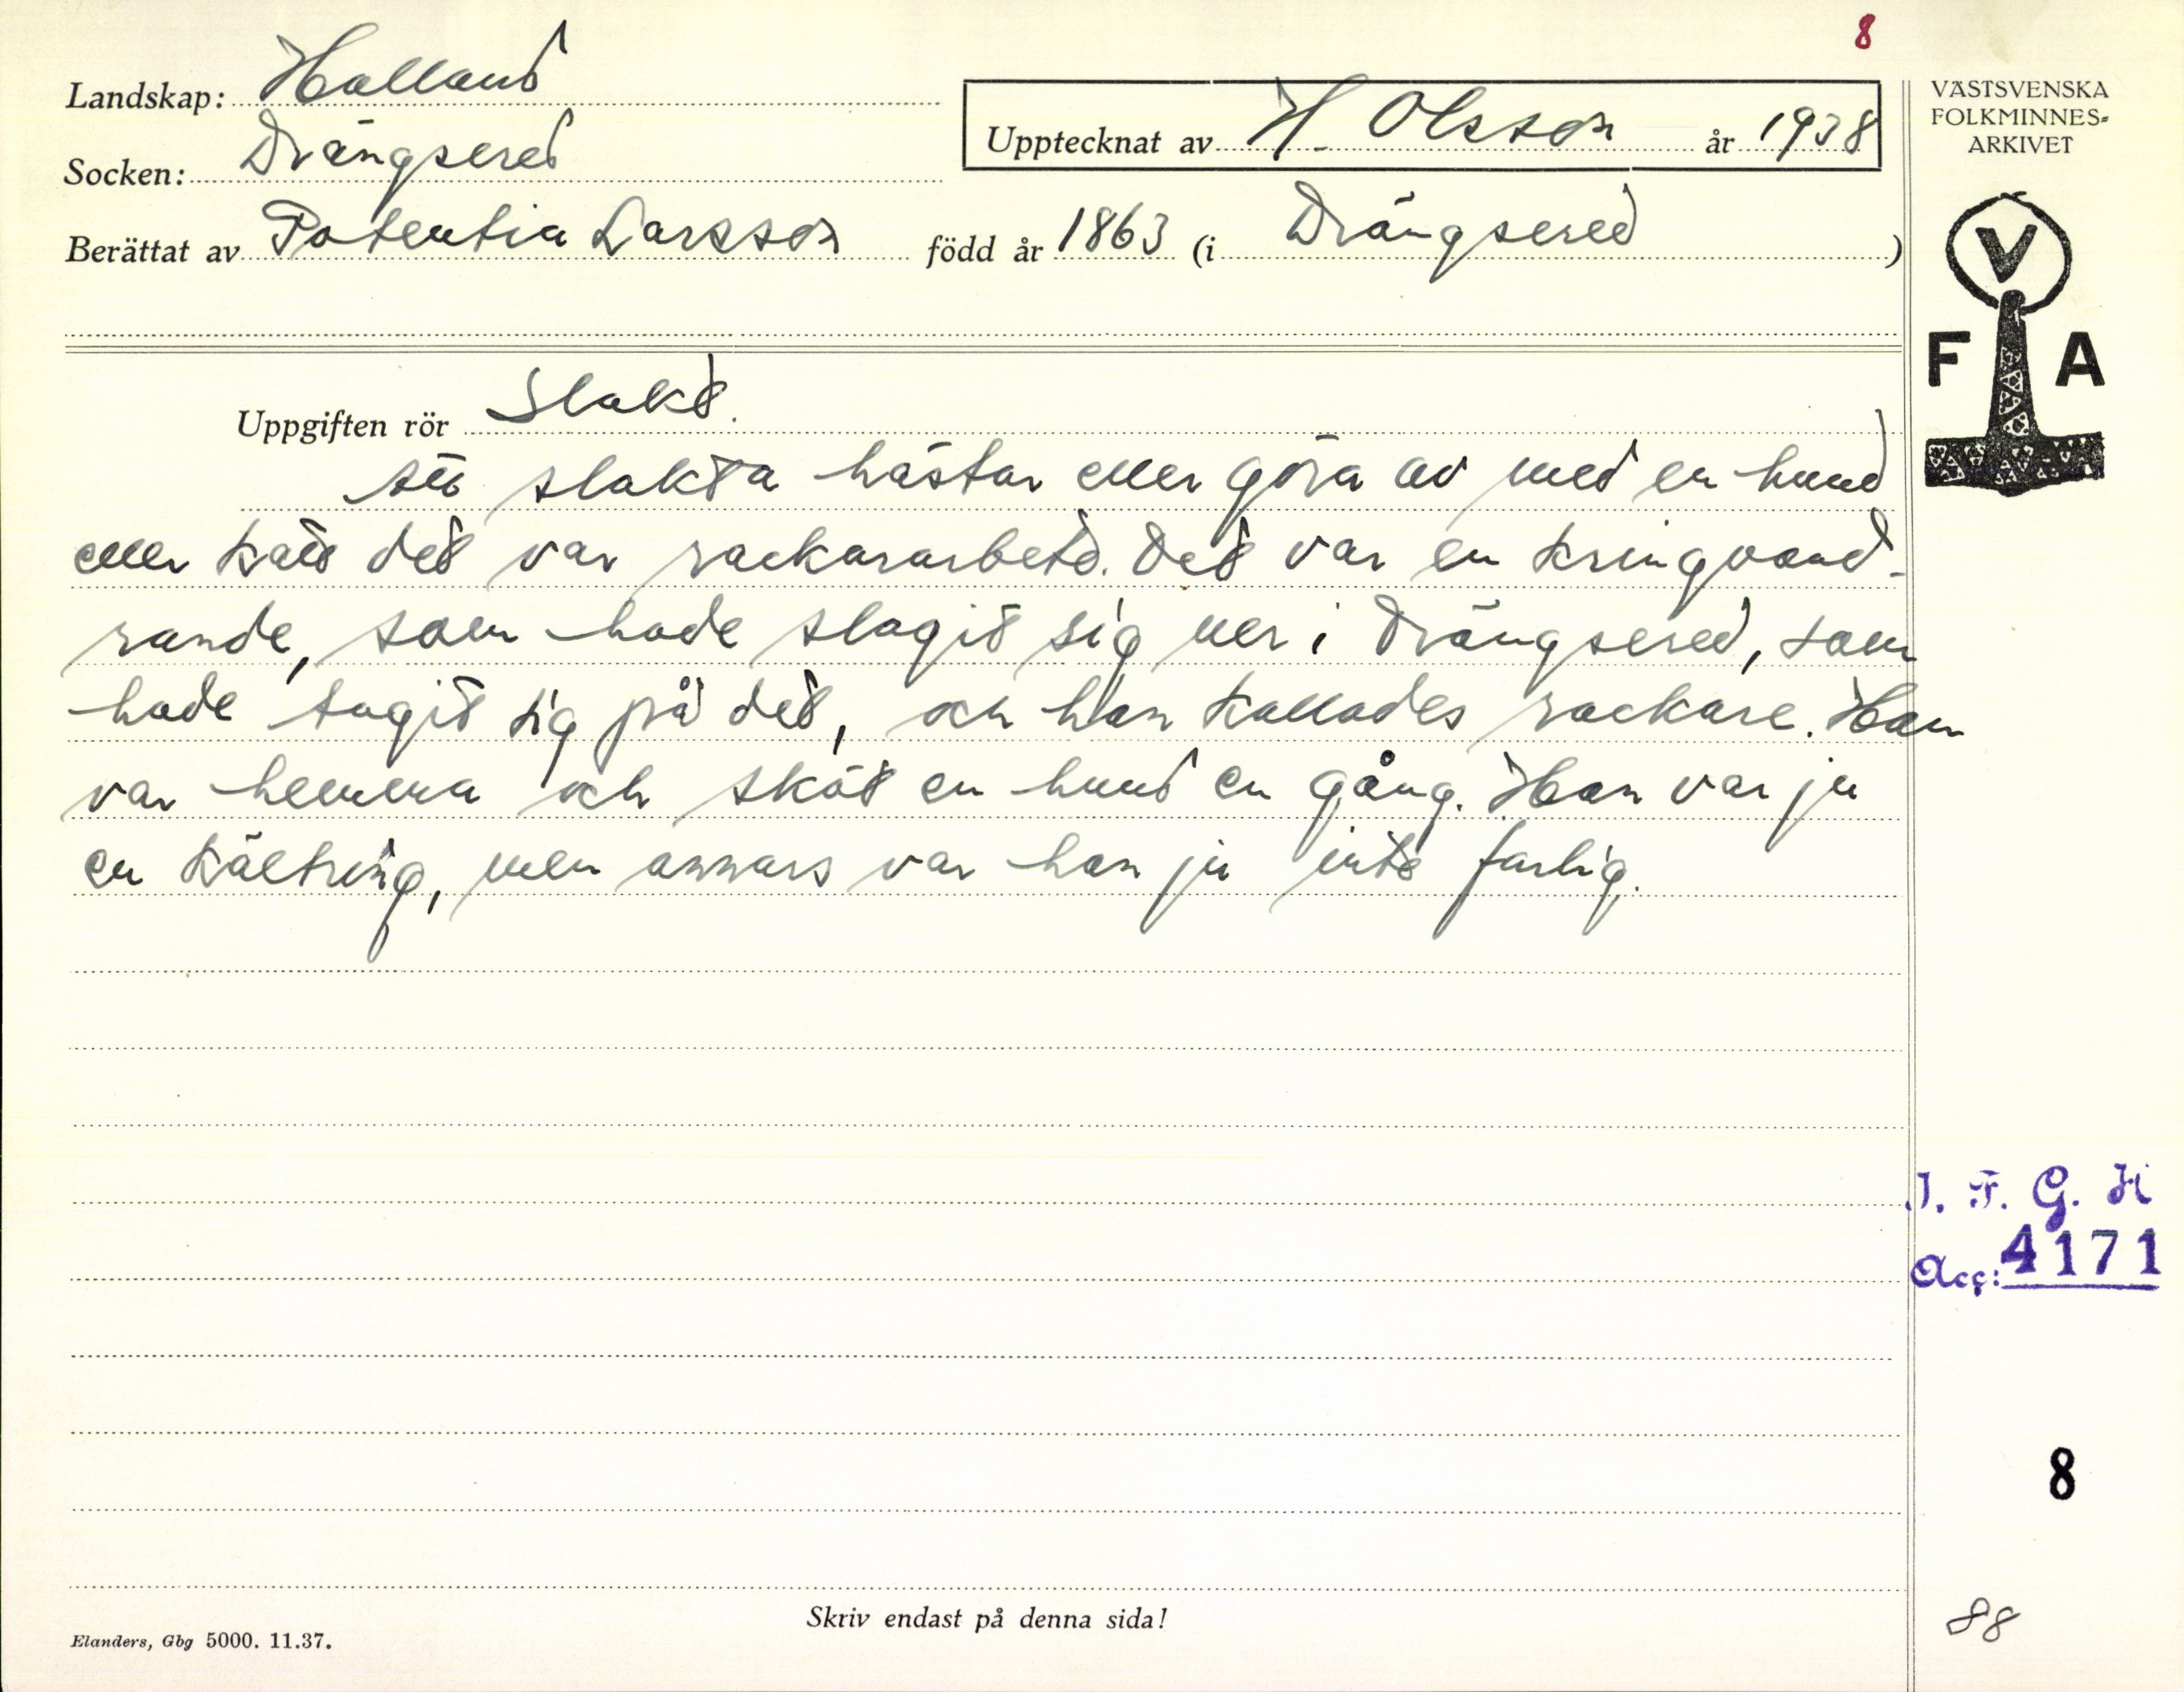 8
Landskap: Halland
Socken: Drängsered
Berättat av Potentia Larsson född år 1863 (i Drängsered)
Upptecknat av H. Olsson år 1938
VÄSTSVENSKA
FOLKMINNES-
ARKIVET
V
F A
Uppgiften rör Slakt.
Att slakta hästar eller göra av med en hund
eller katt det var rackararbete. Det var en kringvand-
rande, som hade slagit sig ner i Drängsered, som
hade tagit sig på det, och han kallades rackare. Han
var hemma och sköt en hund en gång. Han var ju
en kältring, men annars var han ju inte farlig.
I. F. G. H
Acc: 4171
8
88
Skriv endast på denna sida!
Elanders, Gbg 5000. 11.37.